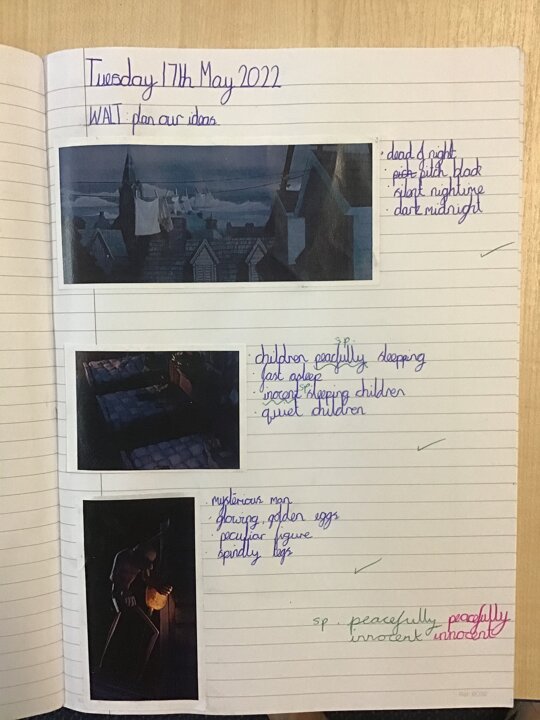 Tuesday 17th May 2022
WALT: plan our ideas
· dead of night
· pich pitch black
· silent nightime
· dark midnight
sp.
· children peacfully sleepping
· fast asleep
sp
· inocent sleeping children
· quiet children
· mysterious man
· glowing, golden eggs
· peculiar figure
· spindly legs
sp. peacefully peacefully
innocent innocent